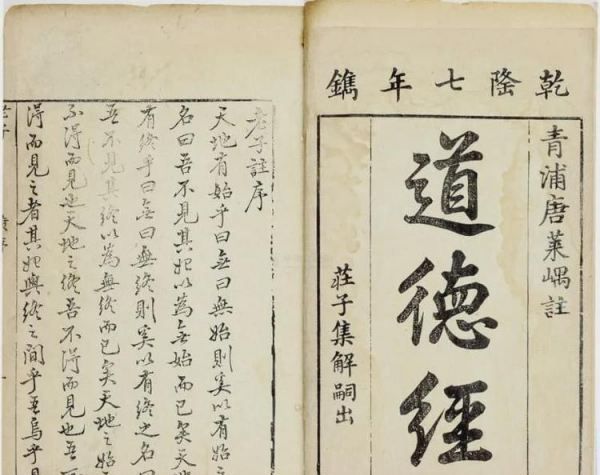 乾隆七年鐫
青浦唐萊嵎註
道德經
莊子集解嗣出
老子註序
天地有始乎曰無曰無始則奚以有始之
名曰吾不見其始以為無始而已矣天地
有終乎曰無曰無終則奚以有終之名曰
吾不見其終以為無終而已矣天地之始
不得而見也天地之終吾不得而見也吾
得而見之者其始與終之間乎吾烏乎
老子